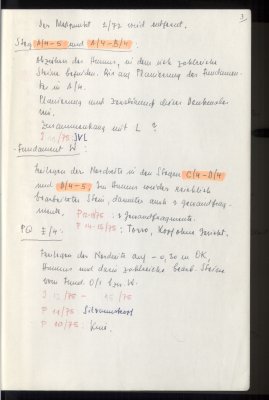 3
Der Messpunkt 2/77 wird entfernt.
Steg A/4-5 und A/4-B/4 :
Abziehen des Humus, in dem sich zahlreiche
Steine befinden. Bis auf Planierung der Fundamen-
te in A/4.
Planierung und
Zusammenhang mit L ?
J 11/75 JVL
Fundament W :
Freilegen der Nordseite in den Stegen C/4-D/4
und D/4-5. Im Humus wieder reichlich
bearbeiteter Stein, darunter auch 2 Gewandfrag-
mente. P 12-13/75 : 2 Gewandfragmente.
P 14-15/75 : Torso, Kopf ohne Gesicht.
PQ I/4 :
Freilegen der Nordseite auf - 0,30 m OK,
Humus und darin zahlreiche bearb. Steine
vom Fund. O/1 bzw. W.
J 12/75 - 15/75
P 11/75
P 10/75 : Knie.